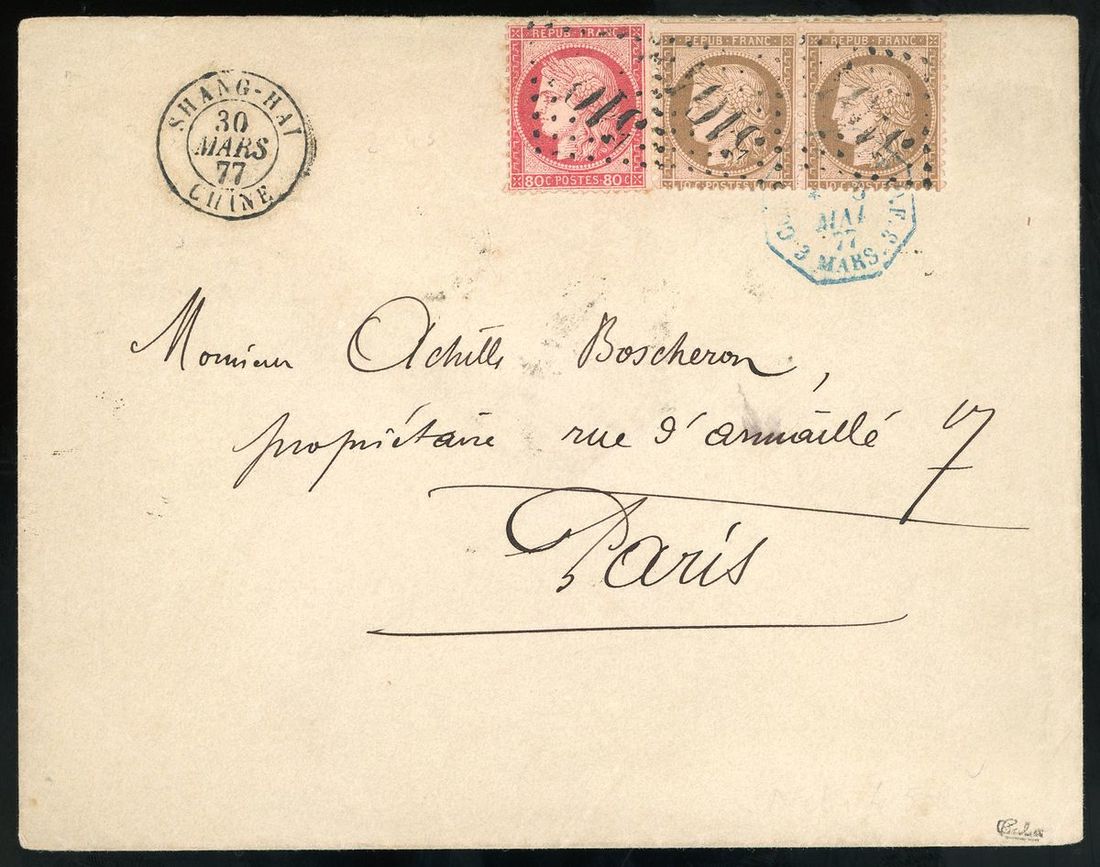 SHANG-HAI
30
MARS
77
CHINE
REPUB·FRANC
80C·POSTES·80C
REPUB·FRANC
10C·POSTES
REPUB·FRANC
10C·POSTES
5104
5104
5104
MAI
77
3 MARS. 3
Monsieur Achille Boscheron,
propriétaire rue d'armaillé 17
Paris